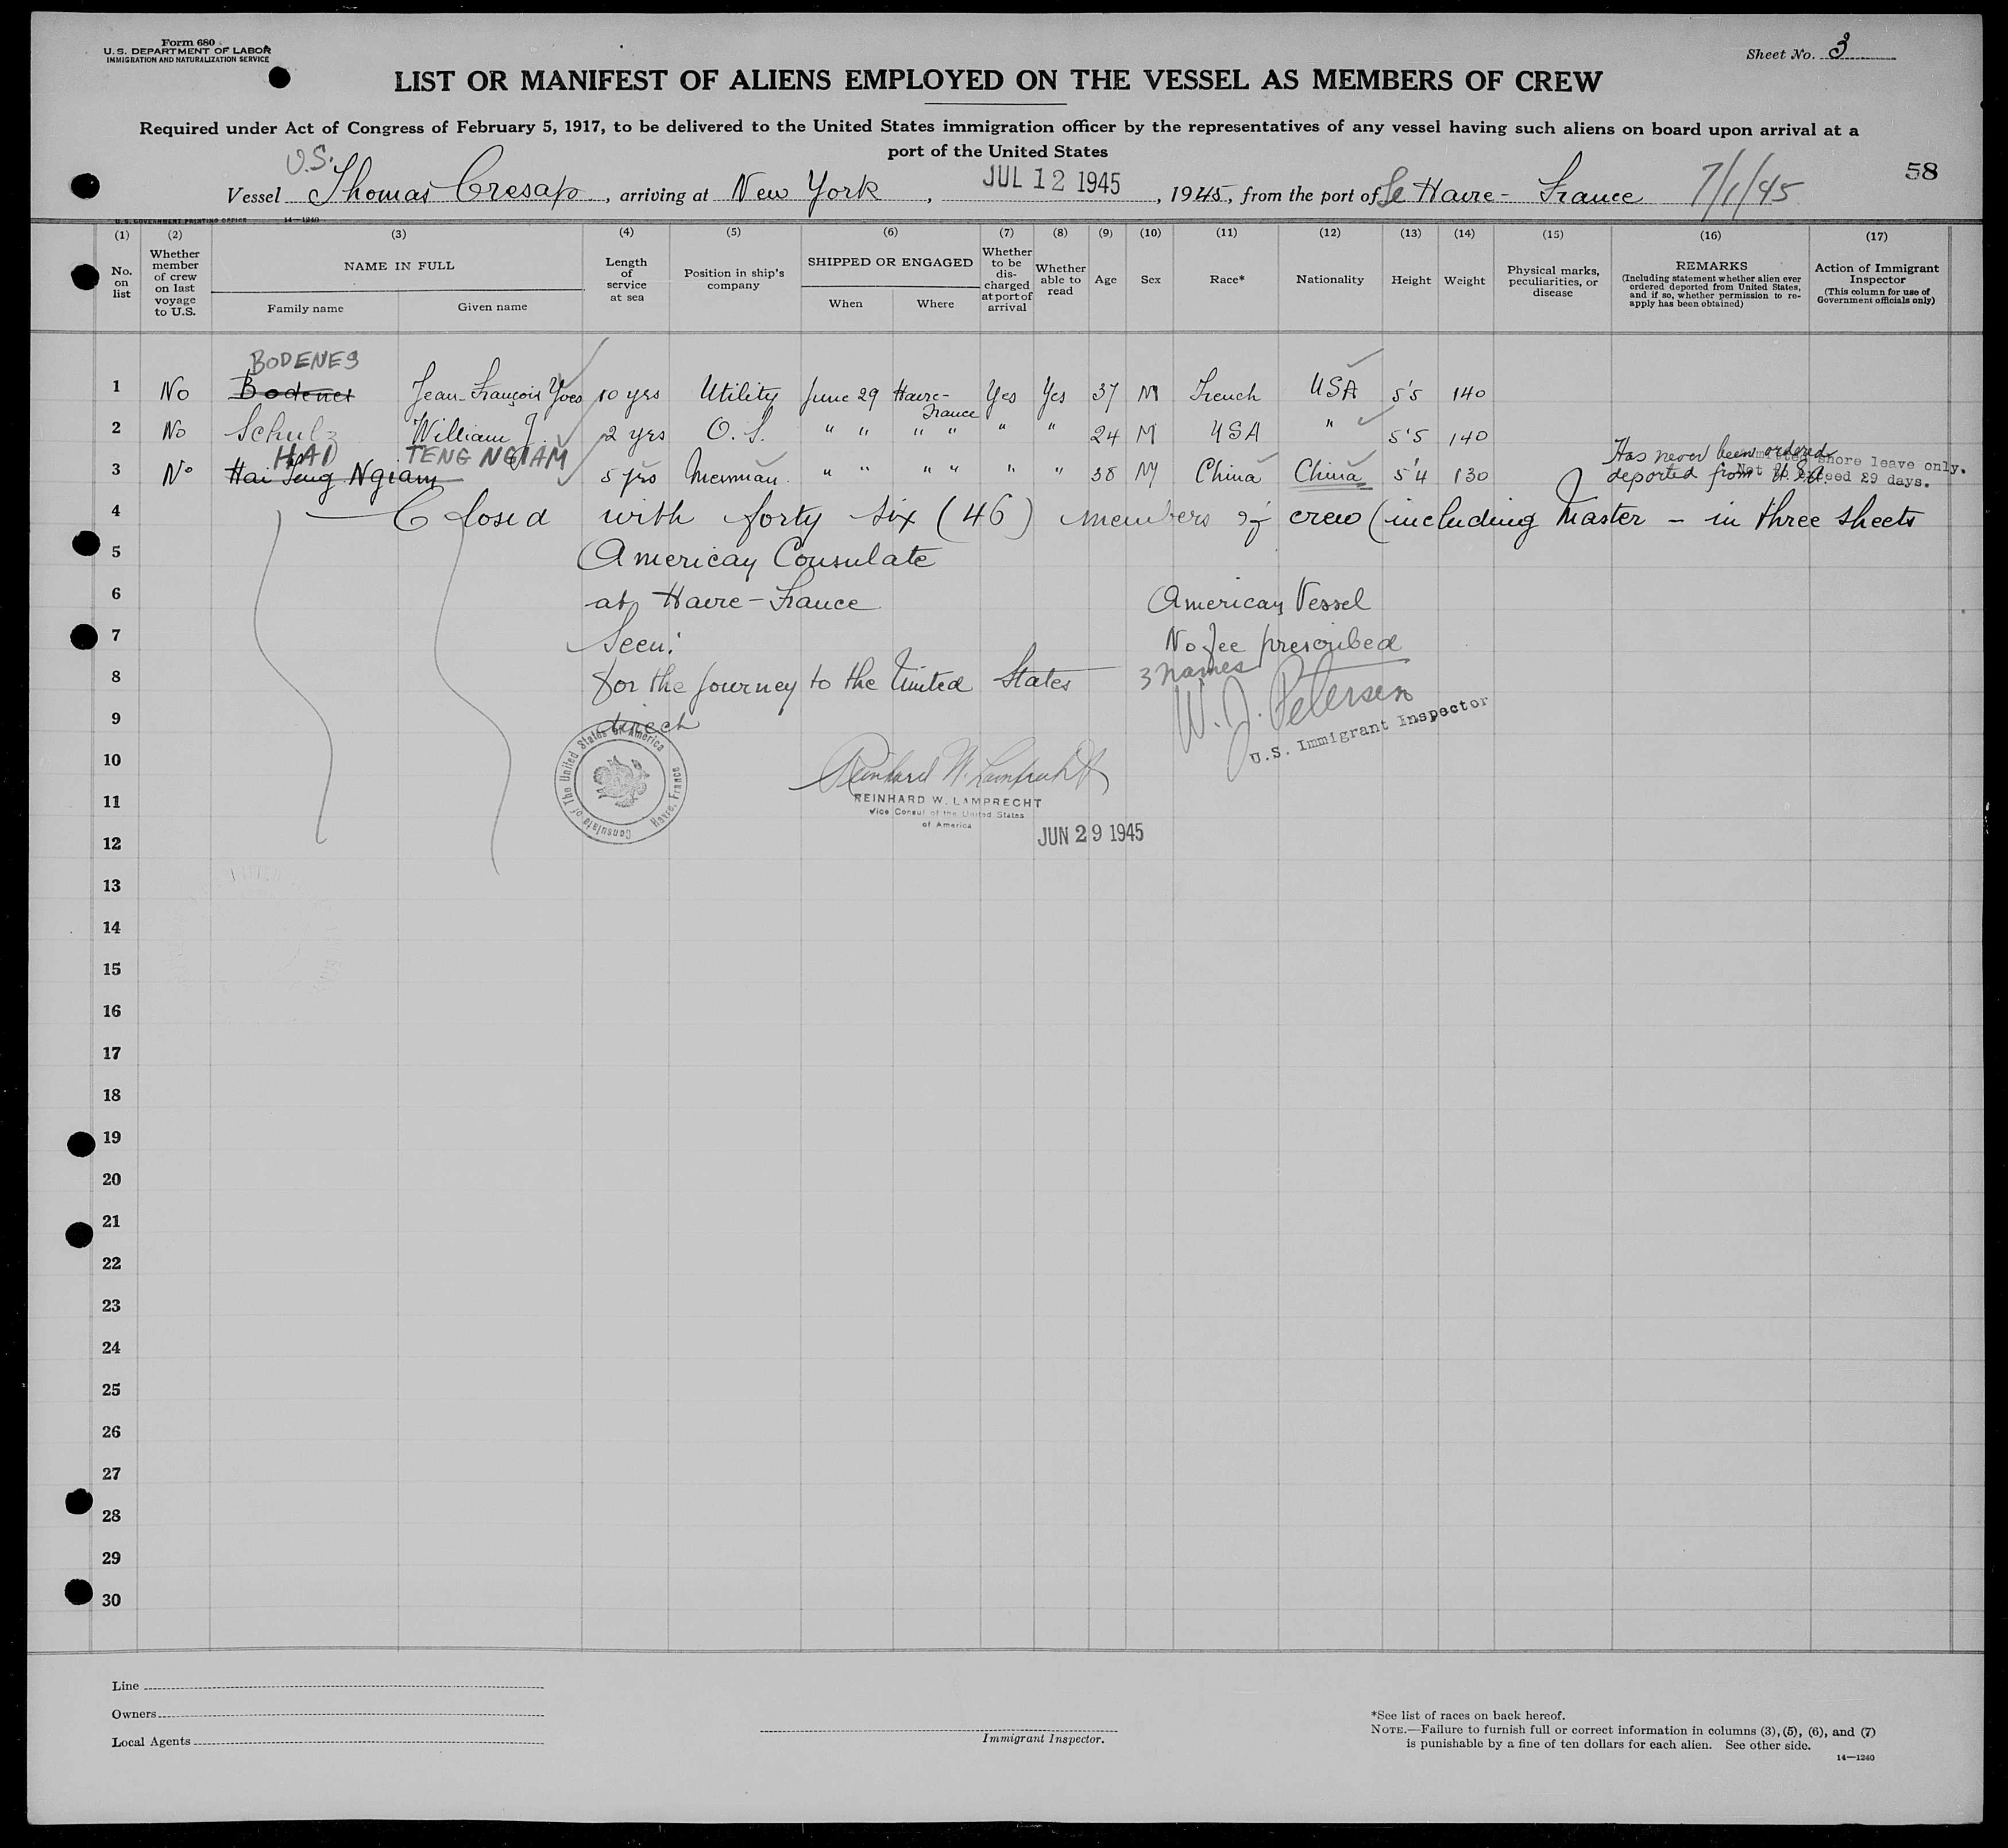 Form 680
U. S. DEPARTMENT OF LABOR
IMMIGRATION AND NATURALIZATION SERVICE
Sheet No. 3
LIST OR MANIFEST OF ALIENS EMPLOYED ON THE VESSEL AS MEMBERS OF CREW
Required under Act of Congress of February 5, 1917, to be delivered to the United States immigration officer by the representatives of any vessel having such aliens on board upon arrival at a
port of the United States
58
U.S.
Vessel Thomas Cresap, arriving at New York, JUL 12 1945, 1945, from the port of Le Havre - France 7/1/45
U. S. GOVERNMENT PRINTING OFFICE 14—1240
(1) (2) (3) (4) (5) (6) (7) (8) (9) (10) (11) (12) (13) (14) (15) (16) (17)
No. on list
Whether member of crew on last voyage to U.S.
NAME IN FULL
Family name
Given name
Length of service at sea
Position in ship's company
SHIPPED OR ENGAGED
When
Where
Whether to be discharged at port of arrival
Whether able to read
Age
Sex
Race*
Nationality
Height
Weight
Physical marks, peculiarities, or disease
REMARKS
(Including statement whether alien ever ordered deported from United States, and if so, whether permission to reapply has been obtained)
Action of Immigrant Inspector
(This column for use of Government officials only)
BODENES
1 No Bodenes Jean-François Yves 10 yrs Utility June 29 Havre-France Yes Yes 37 M French USA 5'5 140
2 No Schulz William J. 2 yrs O. S. " " " " " " 24 M USA " 5'5 140
HAI TENG NGIAM
3 No Hai Teng Ngiam 5 yrs Messman " " " " " " 38 M China China 5'4 130
Has never been ordered
deported from U.S.A.
shore leave only.
Not to exceed 29 days.
4 Closed with forty six (46) members of crew (including Master - in three sheets
5 American Consulate
6 at Havre - France American Vessel
7 Seen: No fee prescribed
8 for the journey to the United States 3 names
W. J. Petersen
9 direct
U.S. Immigrant Inspector
Consulate of The United States of America
Havre, France
10 Reinhard W. Lamprecht
11 REINHARD W. LAMPRECHT
Vice Consul of the United States
of America
12 JUN 29 1945
13
14
15
16
17
18
19
20
21
22
23
24
25
26
27
28
29
30
Line
Owners
Local Agents
Immigrant Inspector.
*See list of races on back hereof.
NOTE.—Failure to furnish full or correct information in columns (3), (5), (6), and (7)
is punishable by a fine of ten dollars for each alien. See other side.
14—1240